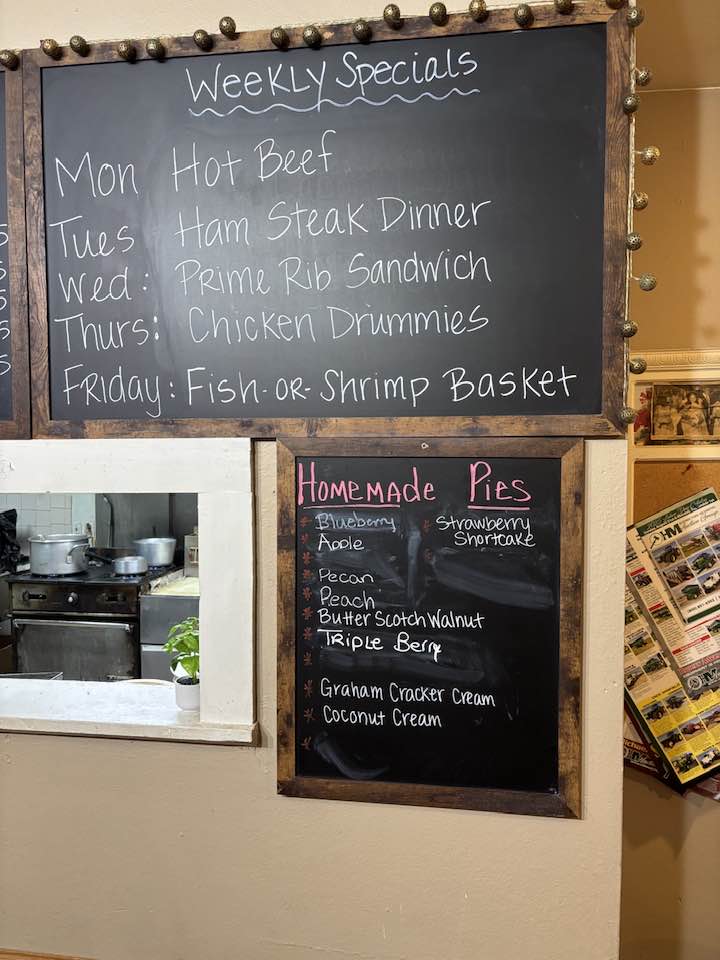 Weekly Specials
Mon Hot Beef
Tues Ham Steak Dinner
Wed: Prime Rib Sandwich
Thurs: Chicken Drummies
Friday: Fish-or-Shrimp Basket
Homemade Pies
Blueberry
Apple
Pecan
Peach
Butter Scotch Walnut
Triple Berry
Graham Cracker Cream
Coconut Cream
Strawberry
Shortcake